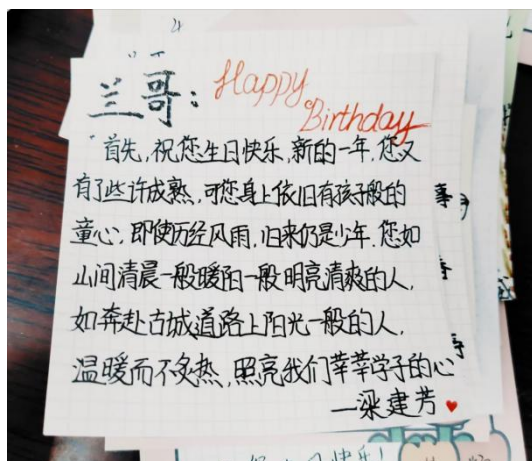 兰哥：Happy
Birthday
首先，祝您生日快乐，新的一年，您又
有了些许成熟，可您身上依旧有孩子般的
童心，即使历经风雨，归来仍是少年。您如
山间清晨一般暖阳一般明亮清爽的人，
如奔赴古城道路上阳光一般的人，
温暖而不炙热，照亮我们莘莘学子的心
—梁建芳